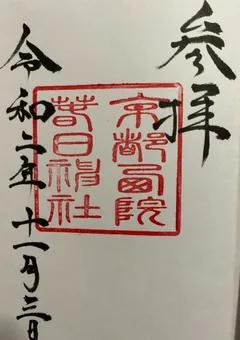 参拝
京都西院
春日神社
令和二年十一月三日